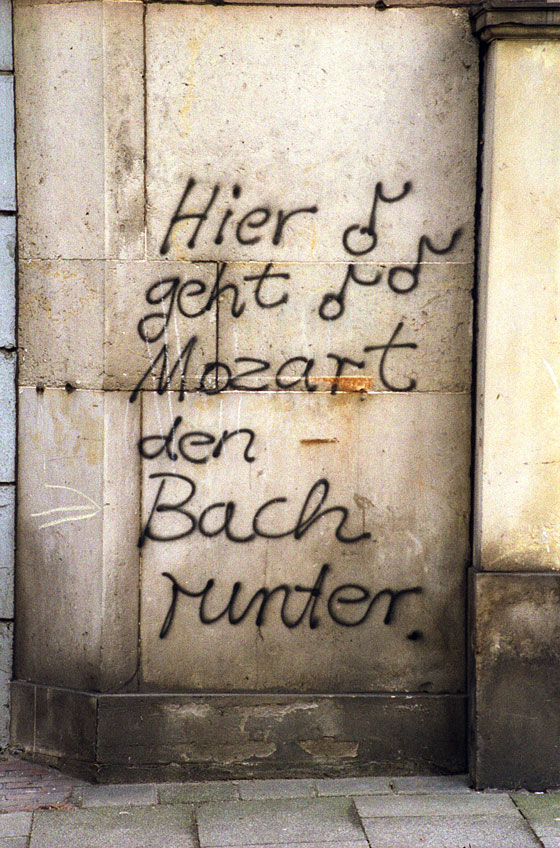 Hier
geht
Mozart
den
Bach
runter.